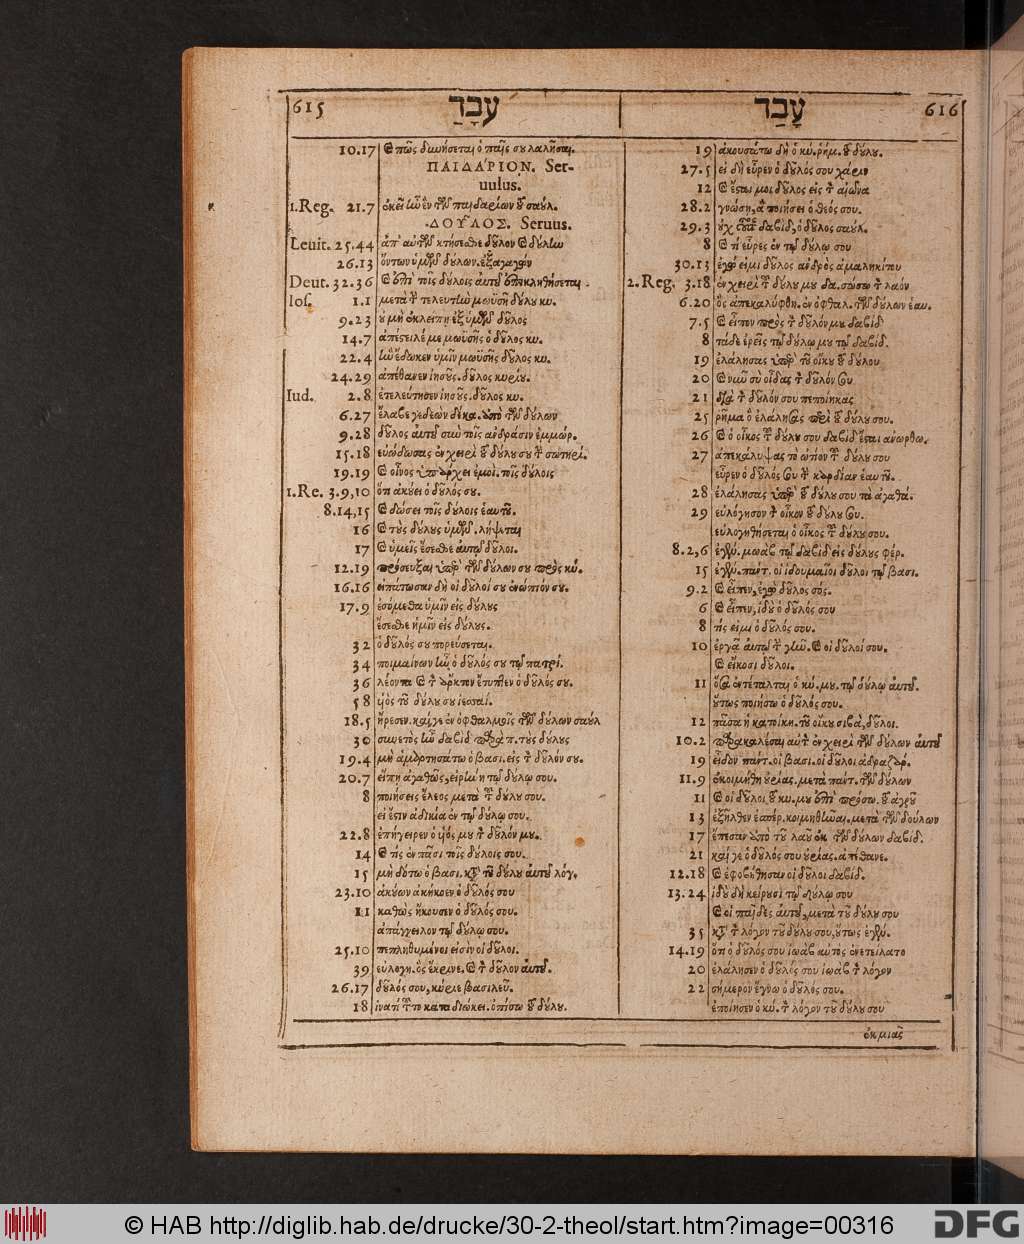 615 עָבַד
10.17 πῶς δυνήσεται ὁ παῖς σου λαλῆσαι.
ΠΑΙΔΑΡΙΟΝ. Ser-
uulus.
1.Reg. 21.7 ἐκεῖ ἦν ἓν τῶν παιδαρίων τοῦ σαούλ.
ΔΟΥΛΟΣ. Seruus.
Leuit. 25.44 ἀπ' αὐτῶν κτήσεσθε δοῦλον καὶ δούλην
26.13 ὄντων ὑμῶν δούλων. ἐξαγαγών
Deut. 32.36 καὶ ἐπὶ τοῖς δούλοις αὐτοῦ παρακληθήσεται.
Ios. 1.1 μετὰ τὴν τελευτὴν μωϋσῆ δούλου κυ.
9.23 οὐ μὴ ἐκλείπῃ ἐξ ὑμῶν δοῦλος
14.7 ἀπέστειλέ με μωϋσῆς ὁ δοῦλος κυ.
22.4 ἣν ἔδωκεν ὑμῖν μωϋσῆς δοῦλος κυ.
24.29 ἀπέθανεν ἰησοῦς. δοῦλος κυρίου.
Iud. 2.8 ἐτελεύτησεν ἰησοῦς. δοῦλος κυ.
6.27 ἔλαβε γεδεὼν δέκα. ἀπὸ τῶν δούλων
9.28 δοῦλος αὐτοῦ σὺν τοῖς ἀνδράσιν ἐμμώρ.
15.18 εὐώδωσας ἐν χειρὶ τοῦ δούλου σου τὴν σωτηρί.
19.19 καὶ οἶνος ὑπάρχει ἐμοὶ. τοῖς δούλοις
1.Re. 3.9,10 ὅτι ἀκούει ὁ δοῦλός σου.
8.14,15 καὶ δώσει τοῖς δούλοις ἑαυτοῦ.
16 καὶ τοὺς δούλους ὑμῶν. λήψεται
17 καὶ ὑμεῖς ἔσεσθε αὐτῷ δοῦλοι.
12.19 πρόσευξαι ὑπὲρ τῶν δούλων σου πρὸς κύ.
16.16 εἰπάτωσαν δὴ οἱ δοῦλοί σου ἐνώπιόν σου.
17.9 ἐσόμεθα ὑμῖν εἰς δούλους
ἔσεσθε ἡμῖν εἰς δούλους.
32 ὁ δοῦλός σου πορεύσεται.
34 ποιμαίνων ἦν ὁ δοῦλός σου τῷ πατρί.
36 λέοντα καὶ τὴν ἄρκτον ἔτυπτεν ὁ δοῦλος σου.
58 υἱὸς τοῦ δούλου σου ἰεσσαί.
18.5 ἤρεσεν. καί γε ἐν ὀφθαλμοῖς τῶν δούλων σαούλ
30 συνετὸς ἦν δαβὶδ παρὰ π. τοὺς δούλους
19.4 μὴ ἁμαρτησάτω ὁ βασι. εἰς τὸν δοῦλόν σου.
20.7 εἴπῃ ἀγαθῶς, εἰρήνη τῷ δούλῳ σου.
8 ποιήσεις ἔλεος μετὰ τοῦ δούλου σου.
εἰ ἔστιν ἀδικία ἐν τῷ δούλῳ σου.
22.8 ἐπήγειρεν ὁ υἱός μου τὸν δοῦλόν μου.
14 καὶ τίς ἐν πᾶσι τοῖς δούλοις σου.
15 μὴ δότω ὁ βασι. κατὰ τοῦ δούλου αὐτοῦ λόγ.
23.10 ἀκούων ἀκήκοεν ὁ δοῦλός σου
11 καθὼς ἤκουσεν ὁ δοῦλός σου.
ἀπάγγειλον τῷ δούλῳ σου.
25.10 πεπληθυμένοι εἰσὶν οἱ δοῦλοι.
39 εὐλογη. ὃς ἔκρινε. καὶ τὸν δοῦλον αὐτοῦ.
26.17 δοῦλός σου, κύριε βασιλεῦ.
18 ἱνατί τοῦτο καταδιώκει. ὀπίσω τοῦ δούλου.
עָבַד 616
19 ἀκουσάτω δὴ ὁ κύ. ῥῆμ. τοῦ δούλου.
27.5 εἰ δὴ εὗρεν ὁ δοῦλός σου χάριν
12 καὶ ἔσται μοι δοῦλος εἰς τὸν αἰῶνα
28.2 γνώσῃ, ἃ ποιήσει ὁ θεός σου.
29.3 οὐχ οὗτος δαβὶδ, ὁ δοῦλος σαούλ.
8 καὶ τί εὗρες ἐν τῷ δούλῳ σου
30.13 ἐγώ εἰμι δοῦλος ἀνδρὸς ἀμαληκίτου
2.Reg. 3.18 ἐν χειρὶ τοῦ δούλου μου δα. σώσω τὸν λαόν
6.20 ὃς ἀπεκαλύφθη. ἐν ὀφθαλ. τῶν δούλων ἑαυ.
7.5 καὶ εἶπον πρὸς τὸν δοῦλόν μου δαβίδ
8 τάδε ἐρεῖς τῷ δούλῳ μου τῷ δαβίδ.
19 ἐλάλησας ὑπὲρ τοῦ οἴκου τοῦ δούλου
20 καὶ νῦν σὺ οἶδας τὸν δοῦλόν σου
21 διὰ τὸν δοῦλόν σου πεποίηκας
25 ῥῆμα ὃ ἐλάλησας περὶ τοῦ δούλου σου.
26 καὶ ὁ οἶκος τοῦ δούλου σου δαβὶδ ἔσται ἀνωρθω.
27 ἀπεκάλυψας τὸ ὠτίον τοῦ δούλου σου
εὗρεν ὁ δοῦλός σου τὴν καρδίαν ἑαυτοῦ.
28 ἐλάλησας ὑπὲρ τοῦ δούλου σου τὰ ἀγαθά.
29 εὐλόγησον τὸν οἶκον τοῦ δούλου σου.
εὐλογηθήσεται ὁ οἶκος τοῦ δούλου σου.
8.2,6 ἐγέν. μωὰβ τῷ δαβὶδ εἰς δούλους φέρ.
15 ἐγέν. πάντ. οἱ ἰδουμαῖοι δοῦλοι τῷ βασι.
9.2 καὶ εἶπεν, ἐγὼ δοῦλος σός.
6 καὶ εἶπεν, ἰδοὺ ὁ δοῦλός σου
8 τίς εἰμι ὁ δοῦλός σου.
10 ἐργᾷ αὐτῷ τὴν γῆν. καὶ οἱ δοῦλοί σου.
καὶ εἴκοσι δοῦλοι.
11 ὅσα ἐντέταλται ὁ κύ. μου. τῷ δούλῳ αὐτοῦ.
οὕτως ποιήσω ὁ δοῦλός σου.
12 πᾶσα ἡ κατοίκη. τοῦ οἴκου σιβὰ, δοῦλοι.
10.2 παρακαλέσαι αὐτὸν ἐν χειρὶ τῶν δούλων αὐτοῦ
19 εἶδον πάντ. οἱ βασι. οἱ δοῦλοι ἀδρααζάρ.
11.9 ἐκοιμήθη οὐρίας. μετὰ πάντ. τῶν δούλων
11 καὶ οἱ δοῦλοι τοῦ κυ. μου ἐπὶ πρόσω. τοῦ ἀγροῦ
13 ἐξῆλθεν ἑσπέρ. κοιμηθῆναι. μετὰ τῶν δούλων
17 ἔπεσαν ἀπὸ τοῦ λαοῦ ἐκ τῶν δούλων δαβίδ.
21 καί γε ὁ δοῦλός σου οὐρίας. ἀπέθανε.
12.18 καὶ ἐφοβήθησαν οἱ δοῦλοι δαβίδ.
13.24 ἰδοὺ δὴ κείρουσι τῷ δούλῳ σου
καὶ οἱ παῖδες αὐτοῦ, μετὰ τοῦ δούλου σου
35 κατὰ τὸν λόγον τοῦ δούλου σου, οὕτως ἐγέν.
14.19 ὅτι ὁ δοῦλός σου ἰωὰβ αὐτὸς ἐνετείλατο
20 ἐλάλησεν ὁ δοῦλός σου ἰωὰβ τὸν λόγον
22 σήμερον ἔγνω ὁ δοῦλός σου.
ἐποίησεν ὁ κύ. τὸν λόγον τοῦ δούλου σου
ἐκ μιᾶς
© HAB http://diglib.hab.de/drucke/30-2-theol/start.htm?image=00316
DFG